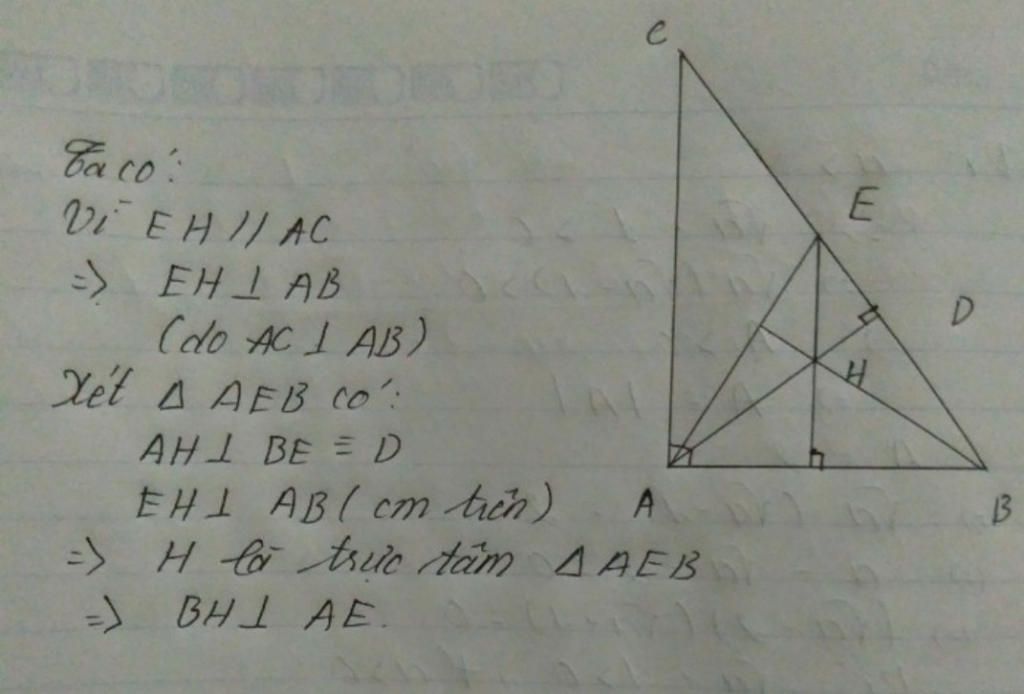 Ta có:
Vì EH // AC
=> EH ⊥ AB
(do AC ⊥ AB)
Xét Δ AEB có:
AH ⊥ BE ≡ D
EH ⊥ AB (cm trên)
=> H là trực tâm Δ AEB
=> BH ⊥ AE.
C
E
D
H
A
B